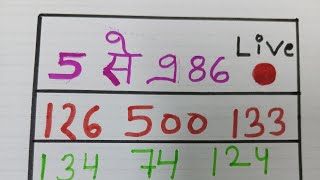 5 से 986 Live
126 500 133
134 74 124